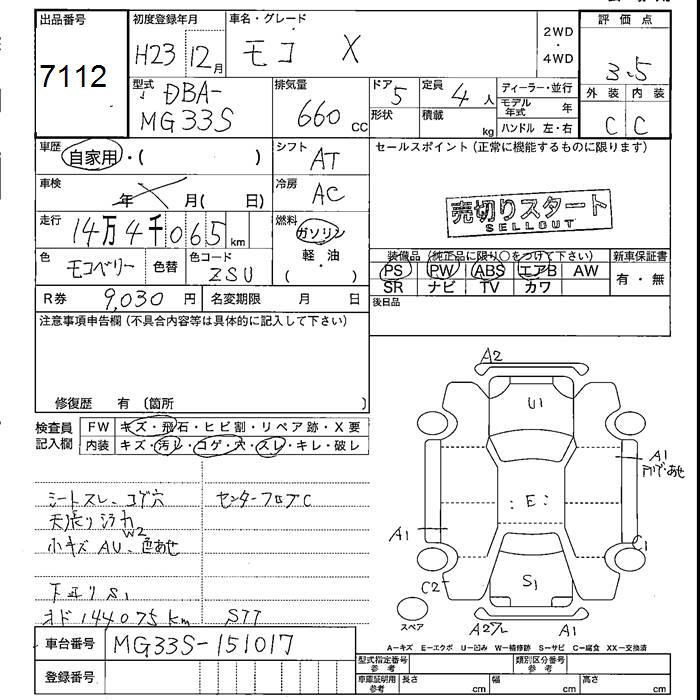 出品番号 初度登録年月 車名・グレード 評価点
7112 H23 12月 モコ X 2WD・4WD 3.5
型式 DBA-MG33S 排気量 660 cc ドア 5 形状 定員 4人 積載 kg ディーラー・並行 モデル年式 年 ハンドル 左・右 外装 内装
C C
車歴 自家用・( ) シフト AT セールスポイント(正常に機能するものに限ります)
車検 年 月( 日) 冷房 AC
売切りスタート
SELLOUT
走行 14万4千065km 燃料 ガソリン・軽油( )
色 モコベリー 色替 色コード ZSU
装備品(純正品に限り○をつけて下さい) 新車保証書
PS PW ABS エアB AW 有・無
SR ナビ TV カワ
R券 9,030円 名変期限 月 日 後日品
注意事項申告欄(不具合内容等は具体的に記入して下さい)
修復歴 有 (箇所 )
検査員記入欄 FW キズ・飛石・ヒビ割・リペア跡・X要
内装 キズ・汚レ・コゲ・穴・スレ・キレ・破レ
シートスレ、コゲ穴 センターフロアC
天張り
W2
小キズ AU、色あせ
下エリ S1
オド 144075km STT
A2
U1
A1
:E:
A1
C1
C2
S1
スペア
A1
車台番号 MG33S-151017
登録番号
A-キズ E-エクボ U-凹み W-補修跡 S-サビ C-腐食 XX-交換済
型式指定番号 参考 類別区分番号 参考
車庫証明用 参考 長さ cm 幅 cm 高さ cm